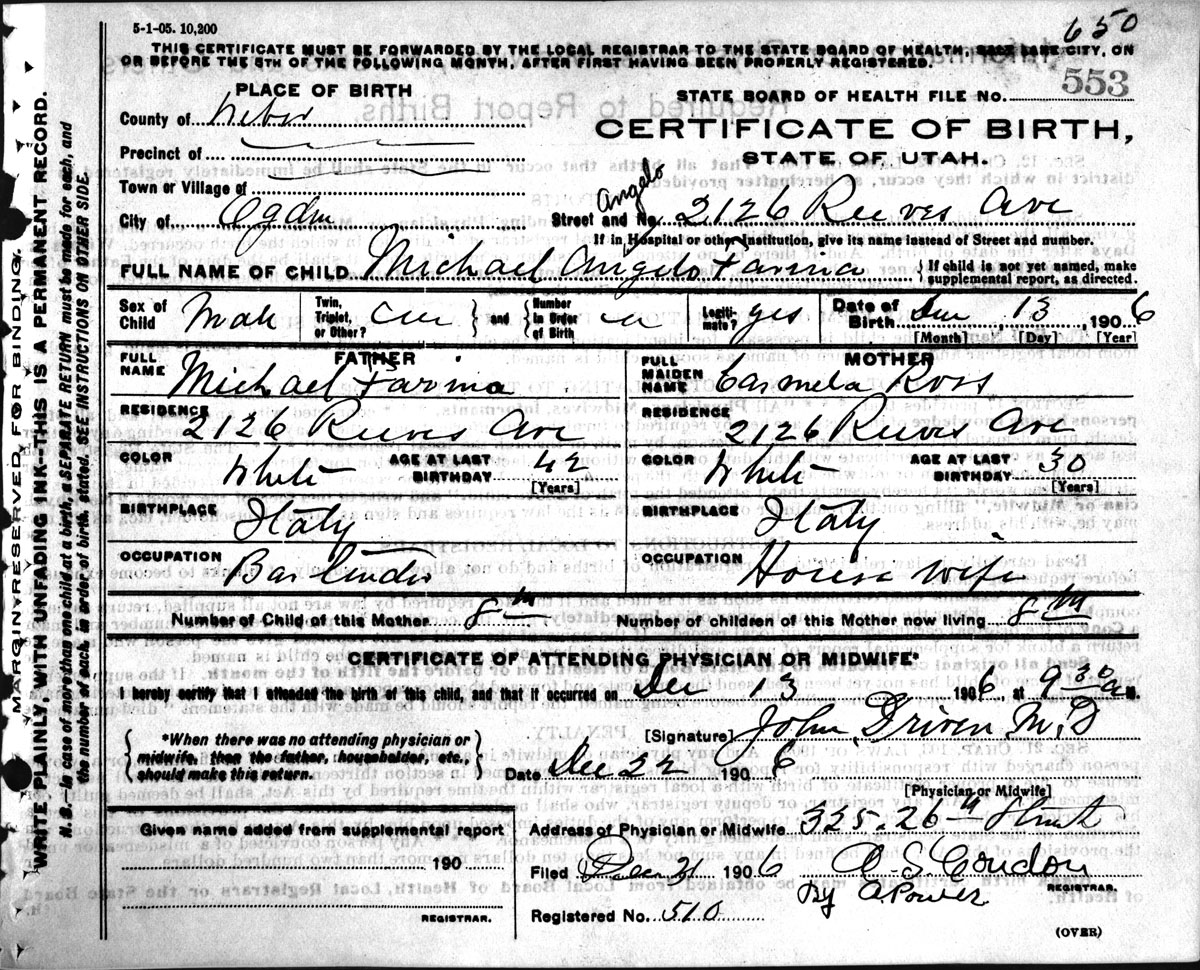 5-1-05. 10,200
650
THIS CERTIFICATE MUST BE FORWARDED BY THE LOCAL REGISTRAR TO THE STATE BOARD OF HEALTH, SALT LAKE CITY, ON
OR BEFORE THE 5TH OF THE FOLLOWING MONTH, AFTER FIRST HAVING BEEN PROPERLY REGISTERED.
PLACE OF BIRTH
STATE BOARD OF HEALTH FILE NO. 553
County of Weber
CERTIFICATE OF BIRTH,
Precinct of
STATE OF UTAH.
Town or Village of
Angelo
City of Ogden Street and No. 2126 Reeves Ave
If in Hospital or other Institution, give its name instead of Street and number.
FULL NAME OF CHILD Michael Angelo Farina { If child is not yet named, make supplemental report, as directed.
Sex of Child Male Twin, Triplet, or Other? } and { Number in Order of Birth Legiti-mate? yes Date of Birth Dec 13, 1906
[Month] [Day] [Year]
FATHER MOTHER
FULL NAME Michael Farina FULL MAIDEN NAME Carmela Ross
RESIDENCE 2126 Reeves Ave RESIDENCE 2126 Reeves Ave
COLOR White AGE AT LAST BIRTHDAY 42 [Years] COLOR White AGE AT LAST BIRTHDAY 30 [Years]
BIRTHPLACE Italy BIRTHPLACE Italy
OCCUPATION Bartender OCCUPATION House wife
Number of Child of this Mother 8th Number of children of this Mother now living 8th
CERTIFICATE OF ATTENDING PHYSICIAN OR MIDWIFE*
I hereby certify that I attended the birth of this child, and that it occurred on Dec 13 1906, at 9 30 a M.
{ *When there was no attending physician or midwife, then the father, householder, etc., should make this return. }
[Signature] John Driven M.D
Date Dec 22 1906
[Physician or Midwife]
Given name added from supplemental report
Address of Physician or Midwife 325-26th Street
190
Filed Dec 31 1906 A. S. Condon
REGISTRAR.
By A Power
REGISTRAR.
Registered No. 510
(OVER)
MARGIN RESERVED FOR BINDING.
WRITE PLAINLY WITH UNFADING INK—THIS IS A PERMANENT RECORD.
N. B.—In case of more than one child at a birth, a SEPARATE RETURN must be made for each, and
the number of each, in order of birth, stated. SEE INSTRUCTIONS ON OTHER SIDE.